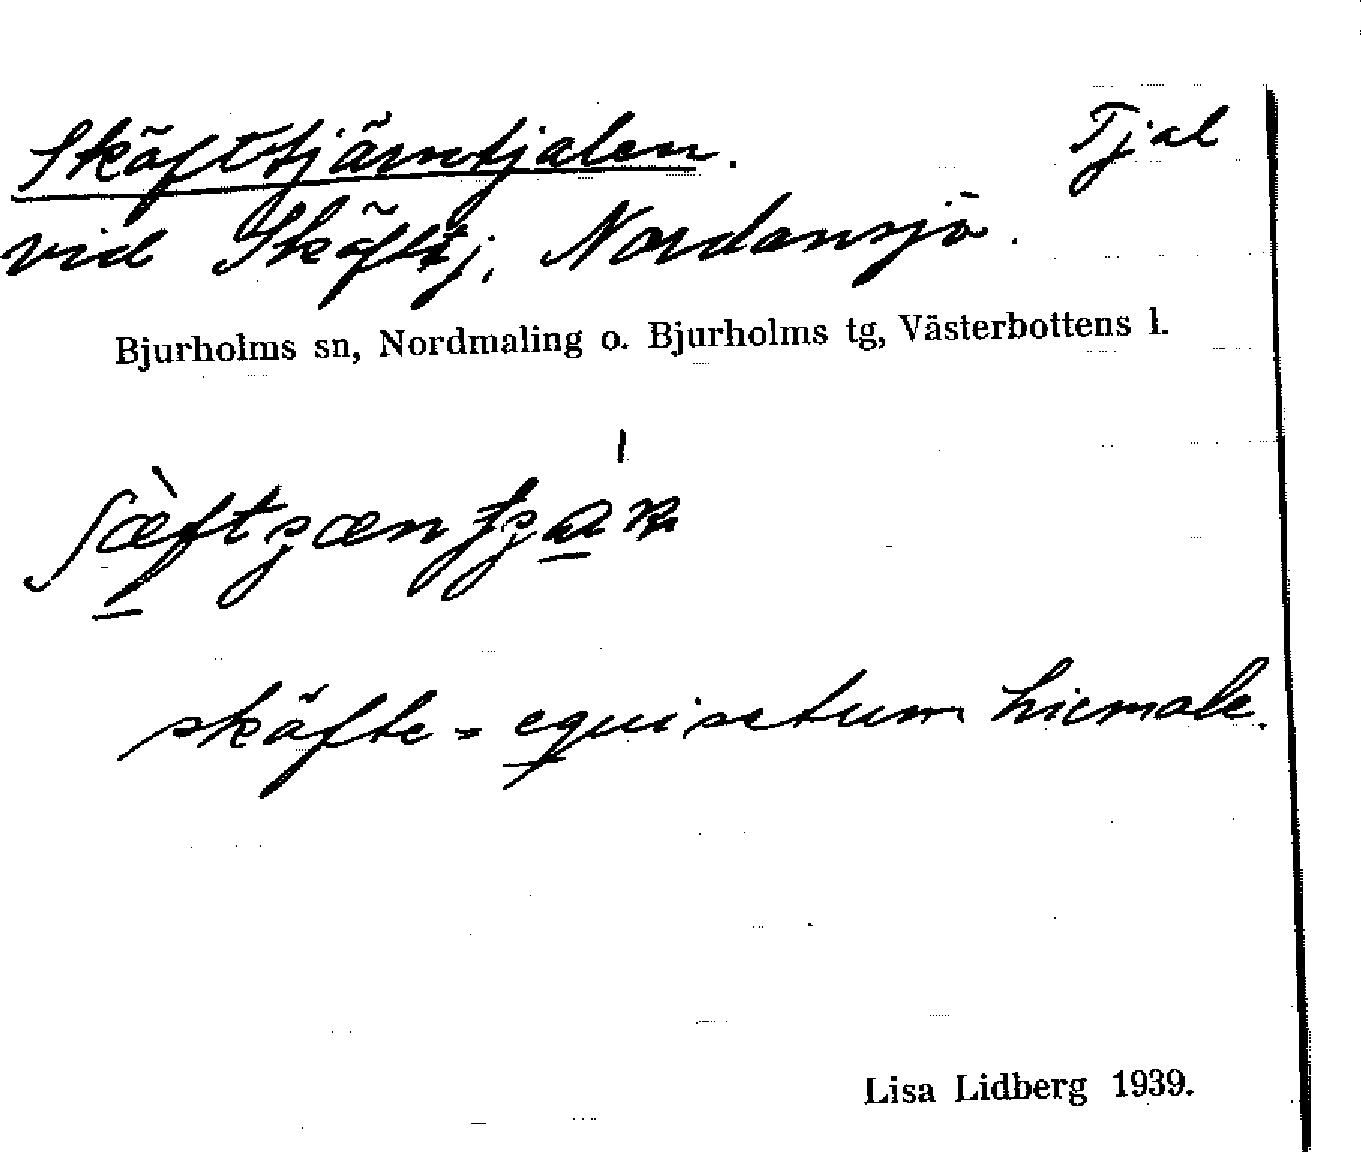 Skäfttjärntjalen. Tjal
vid Skäfttj, Nordansjö.
Bjurholms sn, Nordmaling o. Bjurholms tg, Västerbottens l.
skäfte = equisetum hiemale.
Lisa Lidberg 1939.